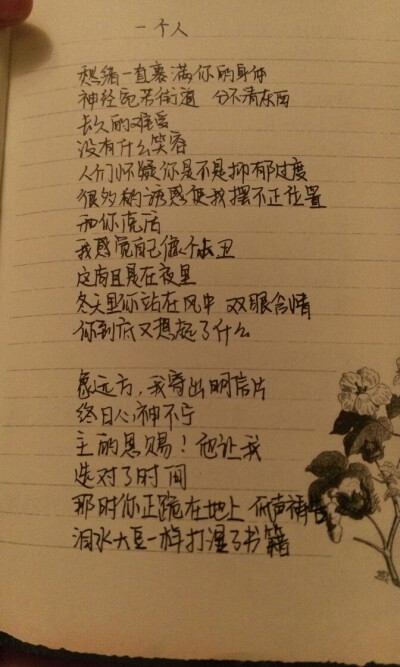 一个人
愁绪一直裹满你的身体
神经宛若街道 分不清东西
长久的难受
没有什么笑容
人们怀疑你是不是抑郁过度
很多的诱惑使我摆不正位置
和你克活
我感觉自己像个小丑
这病且是在夜里
冬天里你站在风中 双眼含情
你到底又想起了什么
象远方，我寄出明信片
终日心神不宁
主的恩赐！他让我
选对了时间
那时你正跪在地上 低声祷告
泪水大豆一样打湿了书籍